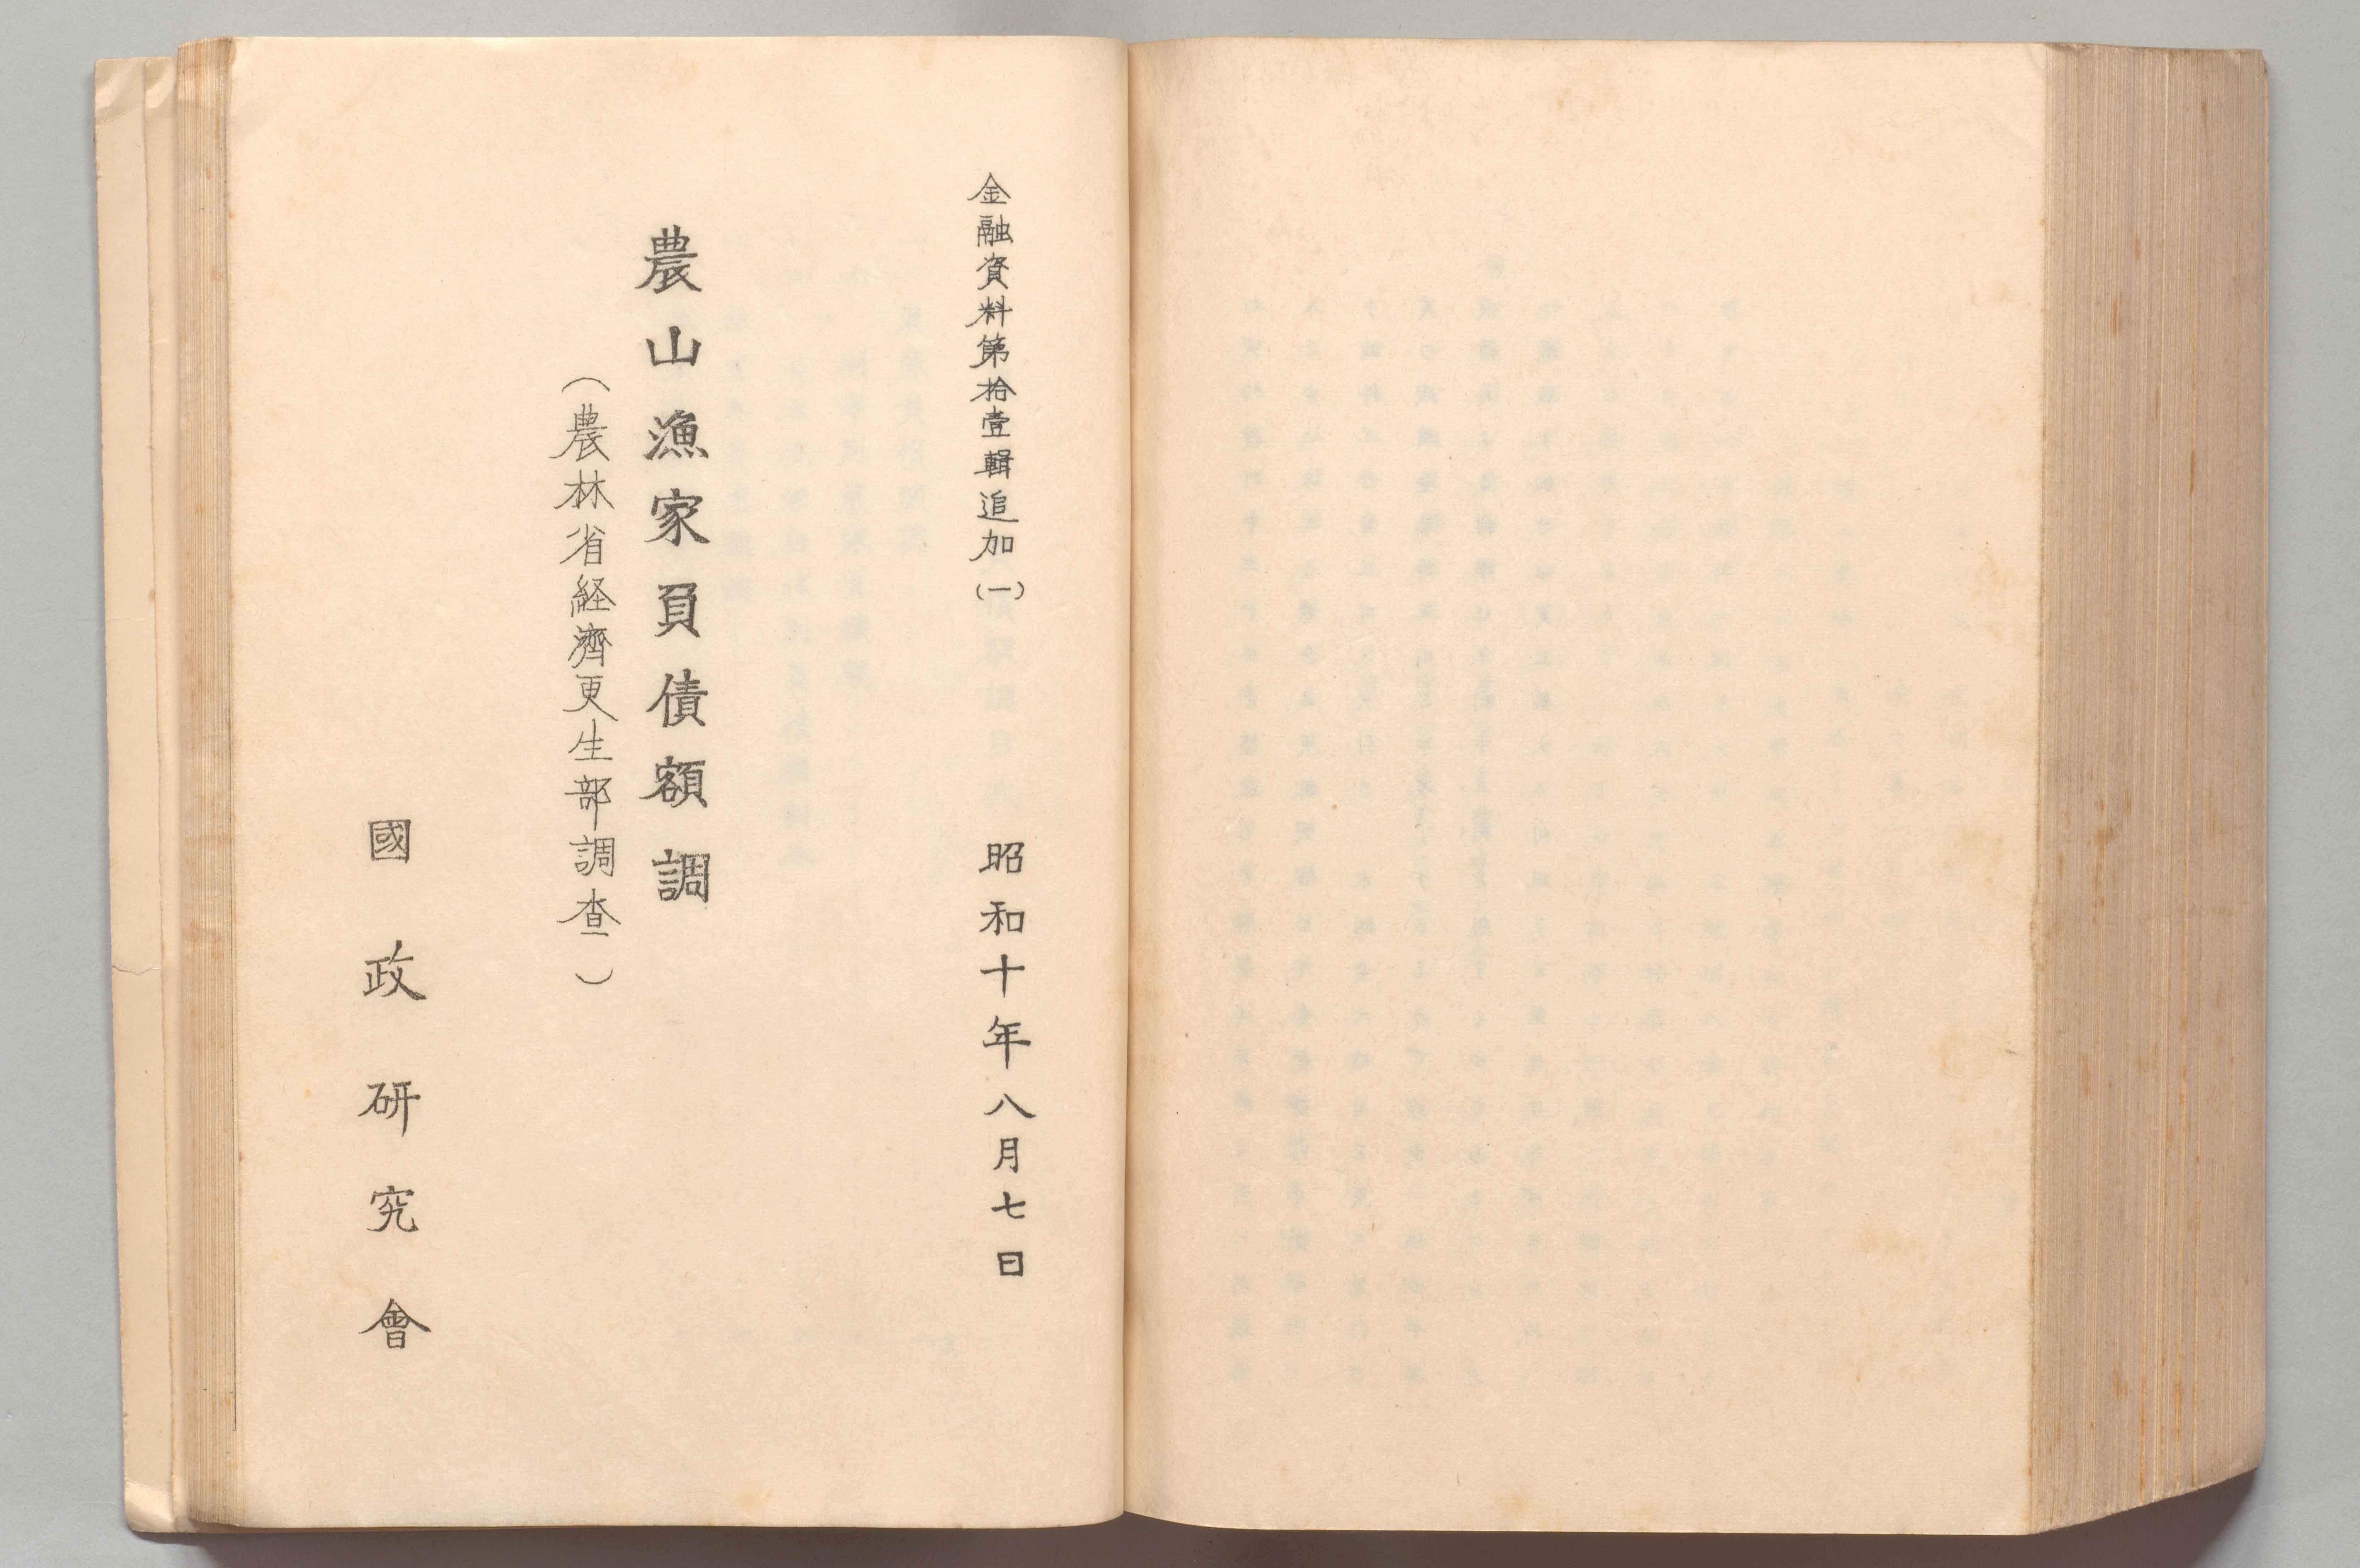 金融資料第拾壹輯追加(一) 昭和十年八月七日
農山漁家負債額調
(農林省経濟更生部調查)
國政研究會